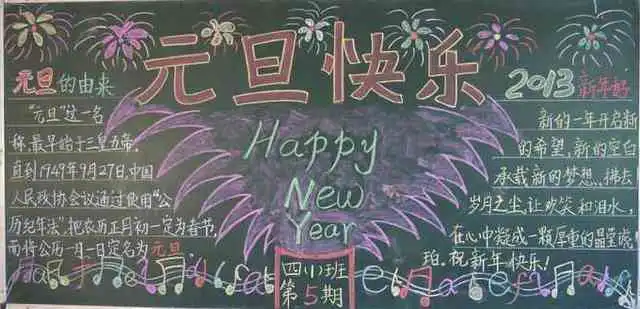 元旦快乐
元旦的由来
"元旦"这一名
称,最早始于三皇五帝,
直到1949年9月27日,中国
人民政协会议通过使用"公
历纪年法",把农历正月初一定为春节,
而将公历一月一日定名为元旦
Happy
New
Year
四(1)班
第5期
2013新年好
新的一年开启新
的希望,新的空白
承载新的梦想,拂去
岁月之尘,让欢笑和泪水,
在心中凝成一颗厚重的晶莹琥
珀.祝新年快乐!